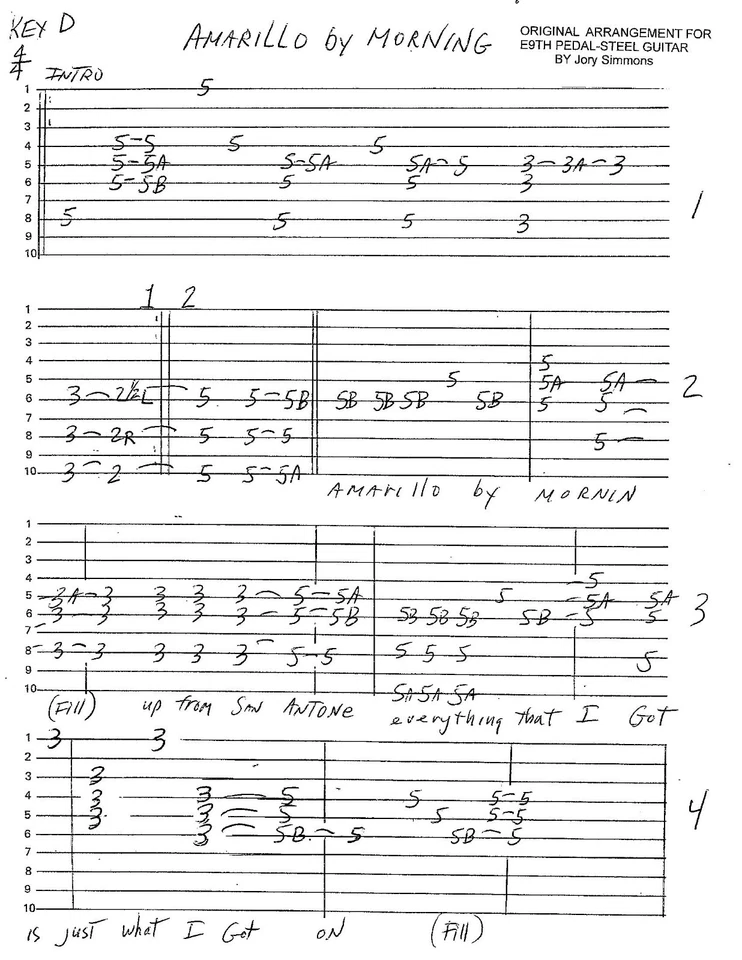 KEY D
4/4
AMARILLO by MORNING
ORIGINAL ARRANGEMENT FOR
E9TH PEDAL-STEEL GUITAR
BY Jory Simmons
INTRO
1 5
2
3
4 5-5 5 5
5 5-5A 5-5A 5A-5 3-3A-3
6 5-5B 5 5 3
7
8 5 5 5 3
9
10
1
1 2
1
2
3
4 5
5 5 5A 5A
6 3-2½L 5 5-5B 5B 5B 5B 5B 5 5
7
8 3-2R 5 5-5 5
9
10 3-2 5 5-5A
2
AMARILLO by MORNIN
1
2
3
4 5
5 3A-3 3 3 3-5-5A 5 5A 5A
6 3-3 3 3 3-5-5B 5B 5B 5B 5B-5 5
7
8 3-3 3 3 3 5-5 5 5 5 5
9
10 5A 5A 5A
3
(Fill) up from SAN ANTONE everything that I Got
1 3 3
2
3 3
4 3 3-5 5 5-5
5 3 3-5 5 5-5
6 3-5B-5 5B-5
7
8
9
10
4
is just what I Got ON (Fill)